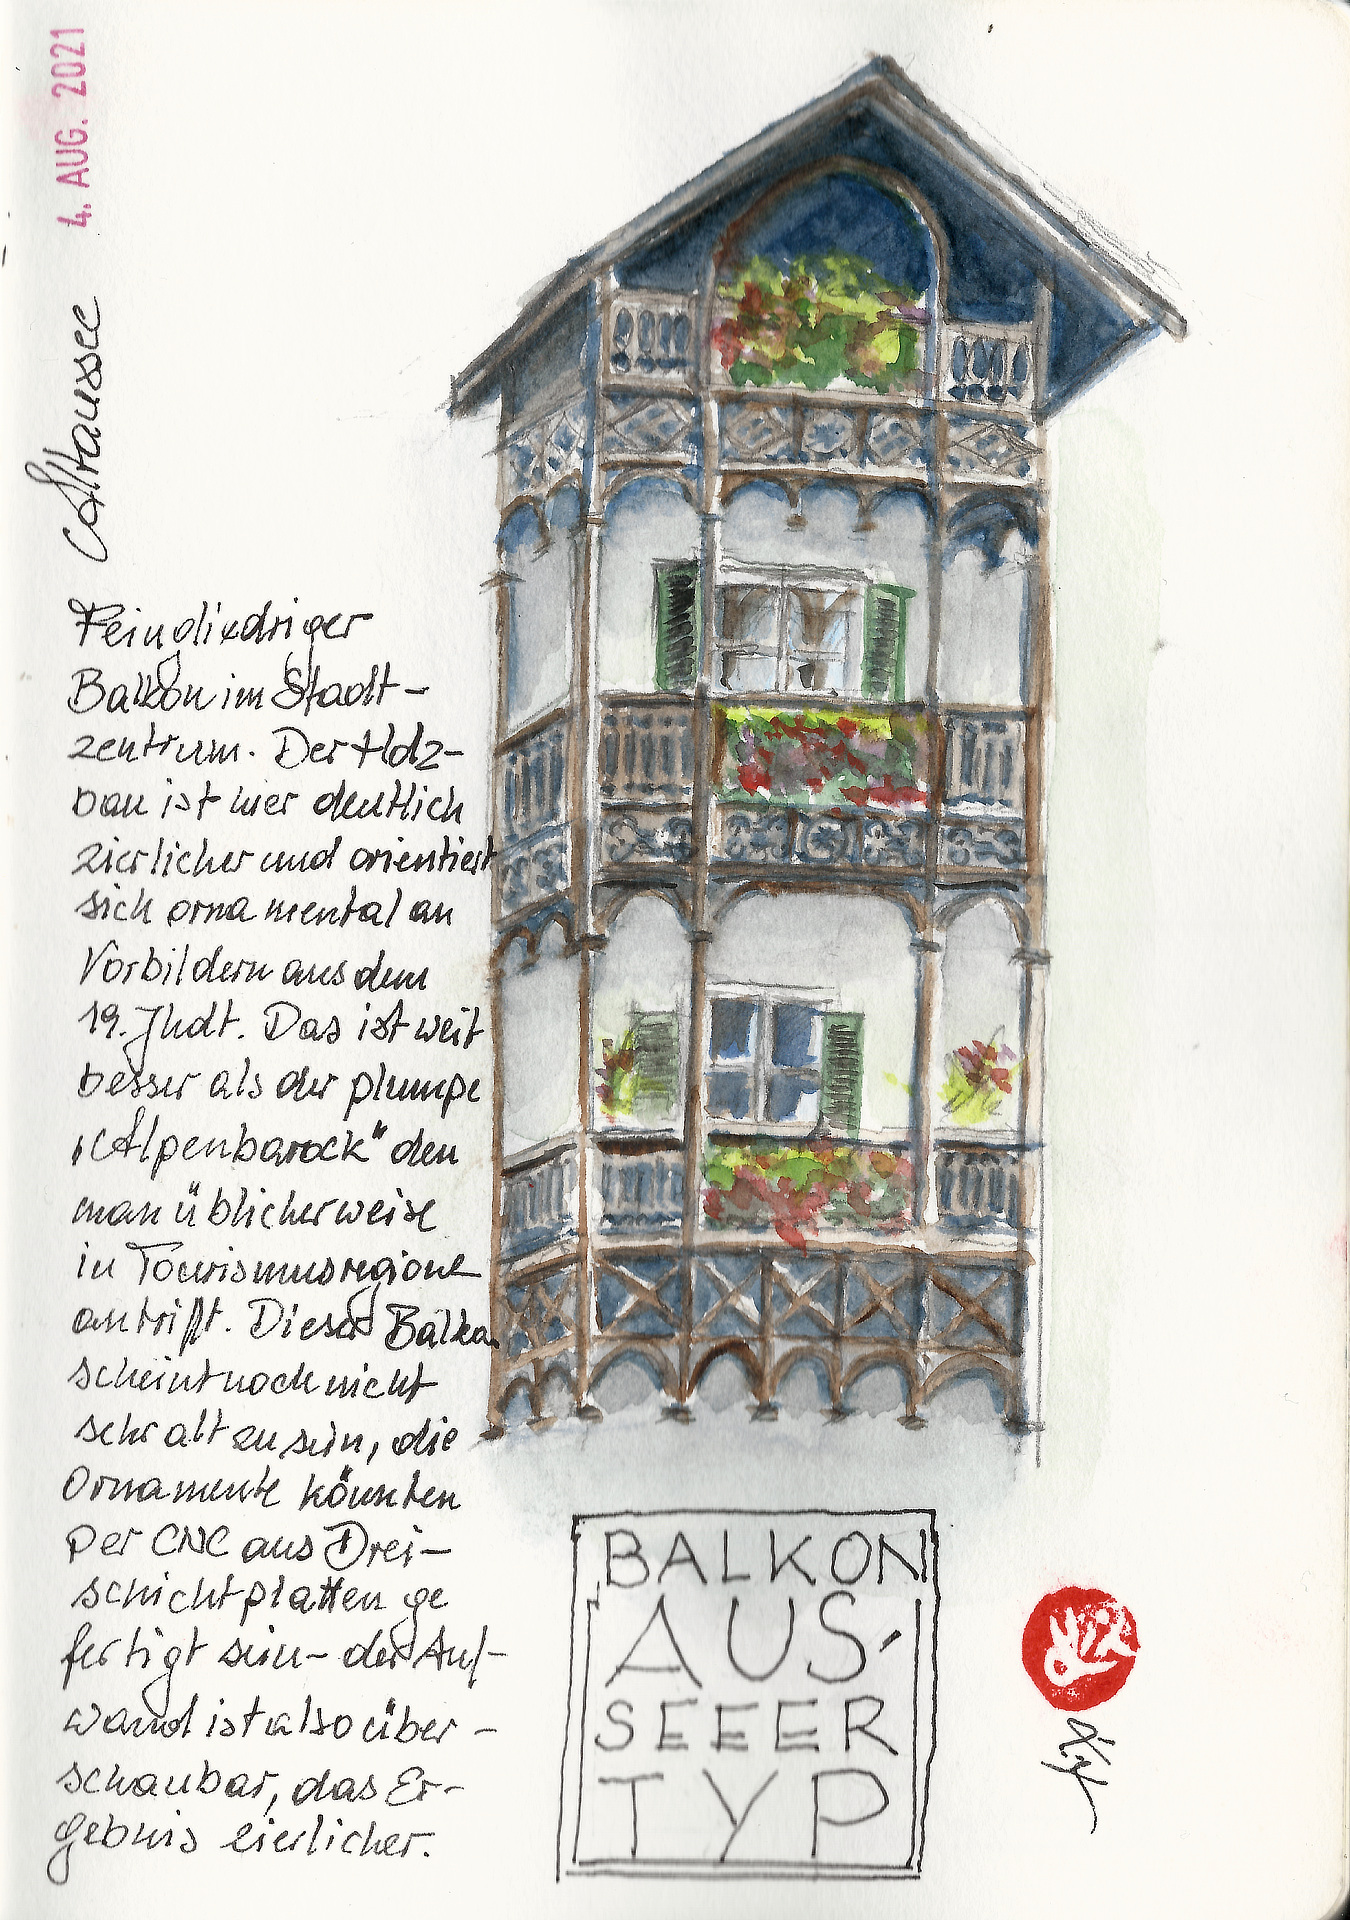 4. AUG. 2021
Altaussee
Feingliedriger
Balkon im Stadt-
zentrum. Der Holz-
bau ist hier deutlich
zierlicher und orientiert
sich ornamental an
Vorbildern aus dem
19. Jhdt. Das ist weit
besser als der plumpe
"Alpenbarock" den
man üblicherweise
in Tourismusregione
antrifft. Dieser Balkon
scheint noch nicht
sehr alt zu sein, die
Ornamente könnten
per CNC aus Drei-
schichtplatten ge
fertigt sein - der Auf-
wand ist also über-
schaubar, das Er-
gebnis zierlicher.
BALKON
AUS-
SEEER
TYP